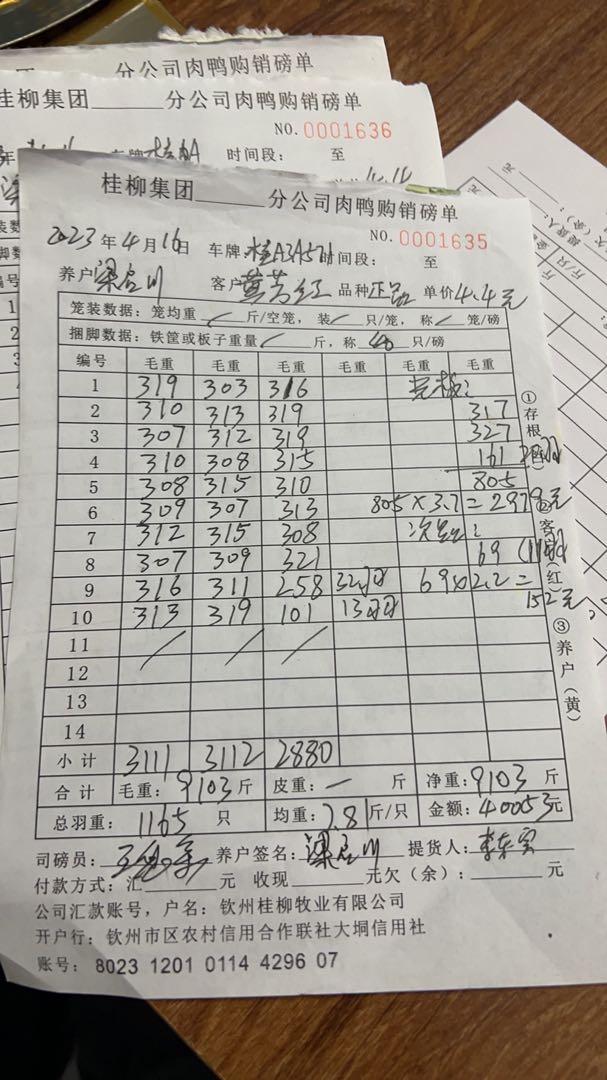 分公司肉鸭购销磅单
桂柳集团______分公司肉鸭购销磅单
NO. 0001636
车牌 时间段: 至
桂柳集团______分公司肉鸭购销磅单
NO. 0001635
2023年4月16日 车牌 桂A3A571 时间段: 至
养户 梁启川 客户 黄芳红 品种 正品 单价 4.4元
笼装数据: 笼均重 / 斤/空笼, 装 / 只/笼, 称 / 笼/磅
捆脚数据: 铁筐或板子重量 / 斤, 称 40 只/磅
编号 毛重 毛重 毛重 毛重 毛重 毛重
1 319 303 316
2 310 313 319 317
3 307 312 319 327
4 310 308 315 161
5 308 315 310 805
6 309 307 313 805×3.7=2979元
7 312 315 308 次品:
8 307 309 321 69
9 316 311 258 32羽 69×2.2=
10 313 319 101 13羽 152元
11 / / /
12
13
14
小计 3111 3112 2880
合计 毛重: 9103斤 皮重: — 斤 净重: 9103斤
总羽重: 1165 只 均重: 7.81斤/只 金额: 40053元
司磅员: 养户签名: 梁启川 提货人: 李东宝
付款方式: 汇______元 收现______元欠(余): ______元
公司汇款账号, 户名: 钦州桂柳牧业有限公司
开户行: 钦州市区农村信用合作联社大垌信用社
账号: 8023 1201 0114 4296 07
①存根
②客户(红)
③养户(黄)